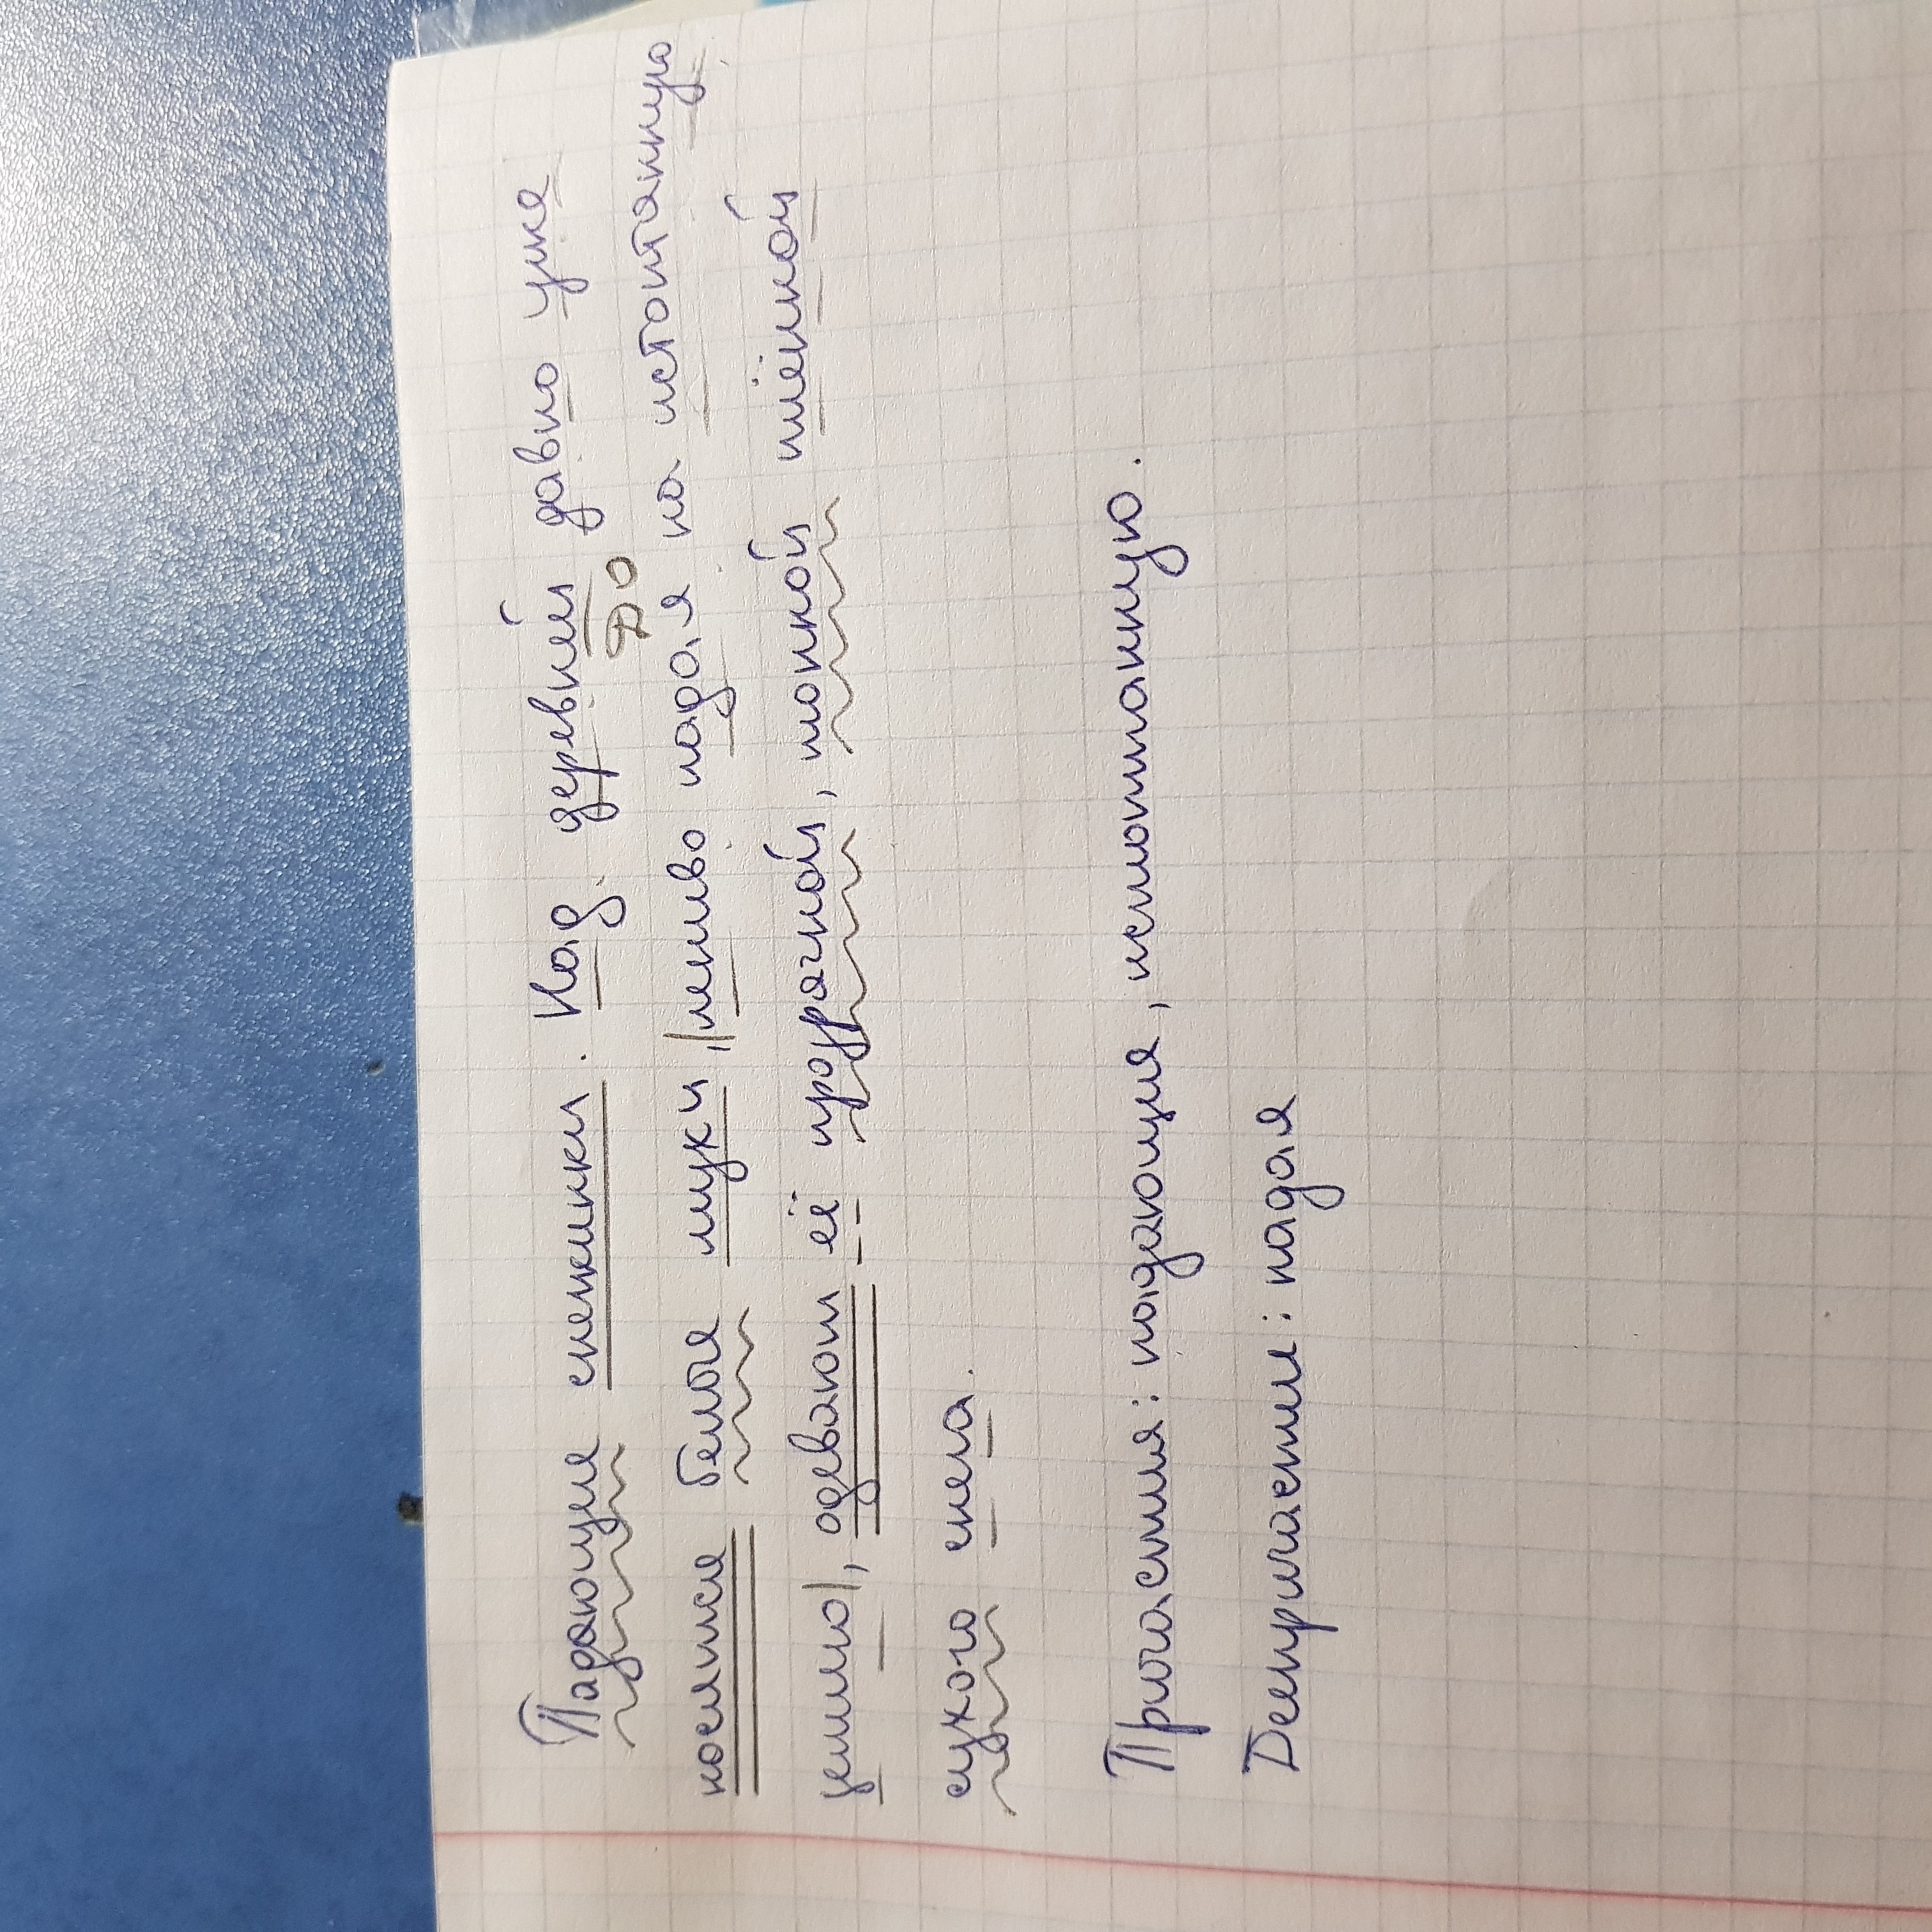 Падающие снежинки. Над деревней давно уже
ДО
носились белые мухи, лениво падая на истоптанную
землю, одевают её прозрачной, тонкой плёнкой
сухого снега.
Причастия: падающие, истоптанную.
Деепричастии: падая